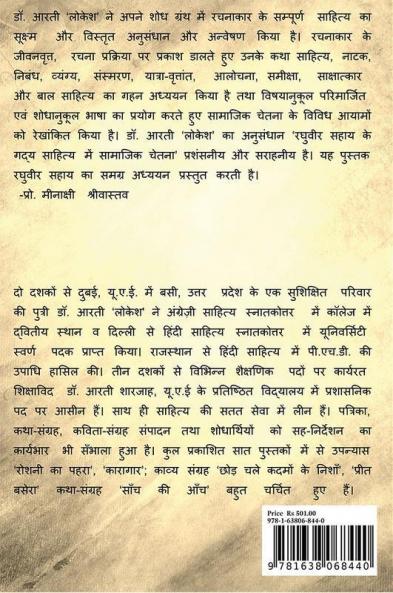 डॉ. आरती 'लोकेश' ने अपने शोध ग्रंथ में रचनाकार के सम्पूर्ण साहित्य का
सूक्ष्म और विस्तृत अनुसंधान और अन्वेषण किया है। रचनाकार के
जीवनवृत्त, रचना प्रक्रिया पर प्रकाश डालते हुए उनके कथा साहित्य, नाटक,
निबंध, व्यंग्य, संस्मरण, यात्रा-वृत्तांत, आलोचना, समीक्षा, साक्षात्कार
और बाल साहित्य का गहन अध्ययन किया है तथा विषयानुकूल परिमार्जित
एवं शोधानुकूल भाषा का प्रयोग करते हुए सामाजिक चेतना के विविध आयामों
को रेखांकित किया है। डॉ. आरती 'लोकेश' का अनुसंधान 'रघुवीर सहाय के
गद्य साहित्य में सामाजिक चेतना' प्रशंसनीय और सराहनीय है। यह पुस्तक
रघुवीर सहाय का समग्र अध्ययन प्रस्तुत करती है।
-प्रो. मीनाक्षी श्रीवास्तव
दो दशकों से दुबई, यू.ए.ई. में बसी, उत्तर प्रदेश के एक सुशिक्षित परिवार
की पुत्री डॉ. आरती 'लोकेश' ने अंग्रेज़ी साहित्य स्नातकोत्तर में कॉलेज में
द्वितीय स्थान व दिल्ली से हिंदी साहित्य स्नातकोत्तर में यूनिवर्सिटी
स्वर्ण पदक प्राप्त किया। राजस्थान से हिंदी साहित्य में पी.एच.डी. की
उपाधि हासिल की। तीन दशकों से विभिन्न शैक्षणिक पदों पर कार्यरत
शिक्षाविद डॉ. आरती शारजाह, यू.ए.ई के प्रतिष्ठित विद्यालय में प्रशासनिक
पद पर आसीन हैं। साथ ही साहित्य की सतत सेवा में लीन हैं। पत्रिका,
कथा-संग्रह, कविता-संग्रह संपादन तथा शोधार्थियों को सह-निर्देशन का
कार्यभार भी सँभाला हुआ है। कुल प्रकाशित सात पुस्तकों में से उपन्यास
'रोशनी का पहरा', 'कारागार'; काव्य संग्रह 'छोड़ चले कदमों के निशाँ', 'प्रीत
बसेरा' कथा-संग्रह 'साँच की आँच' बहुत चर्चित हुए हैं।
Price Rs 501.00
978-1-63806-844-0
9 781638 068440